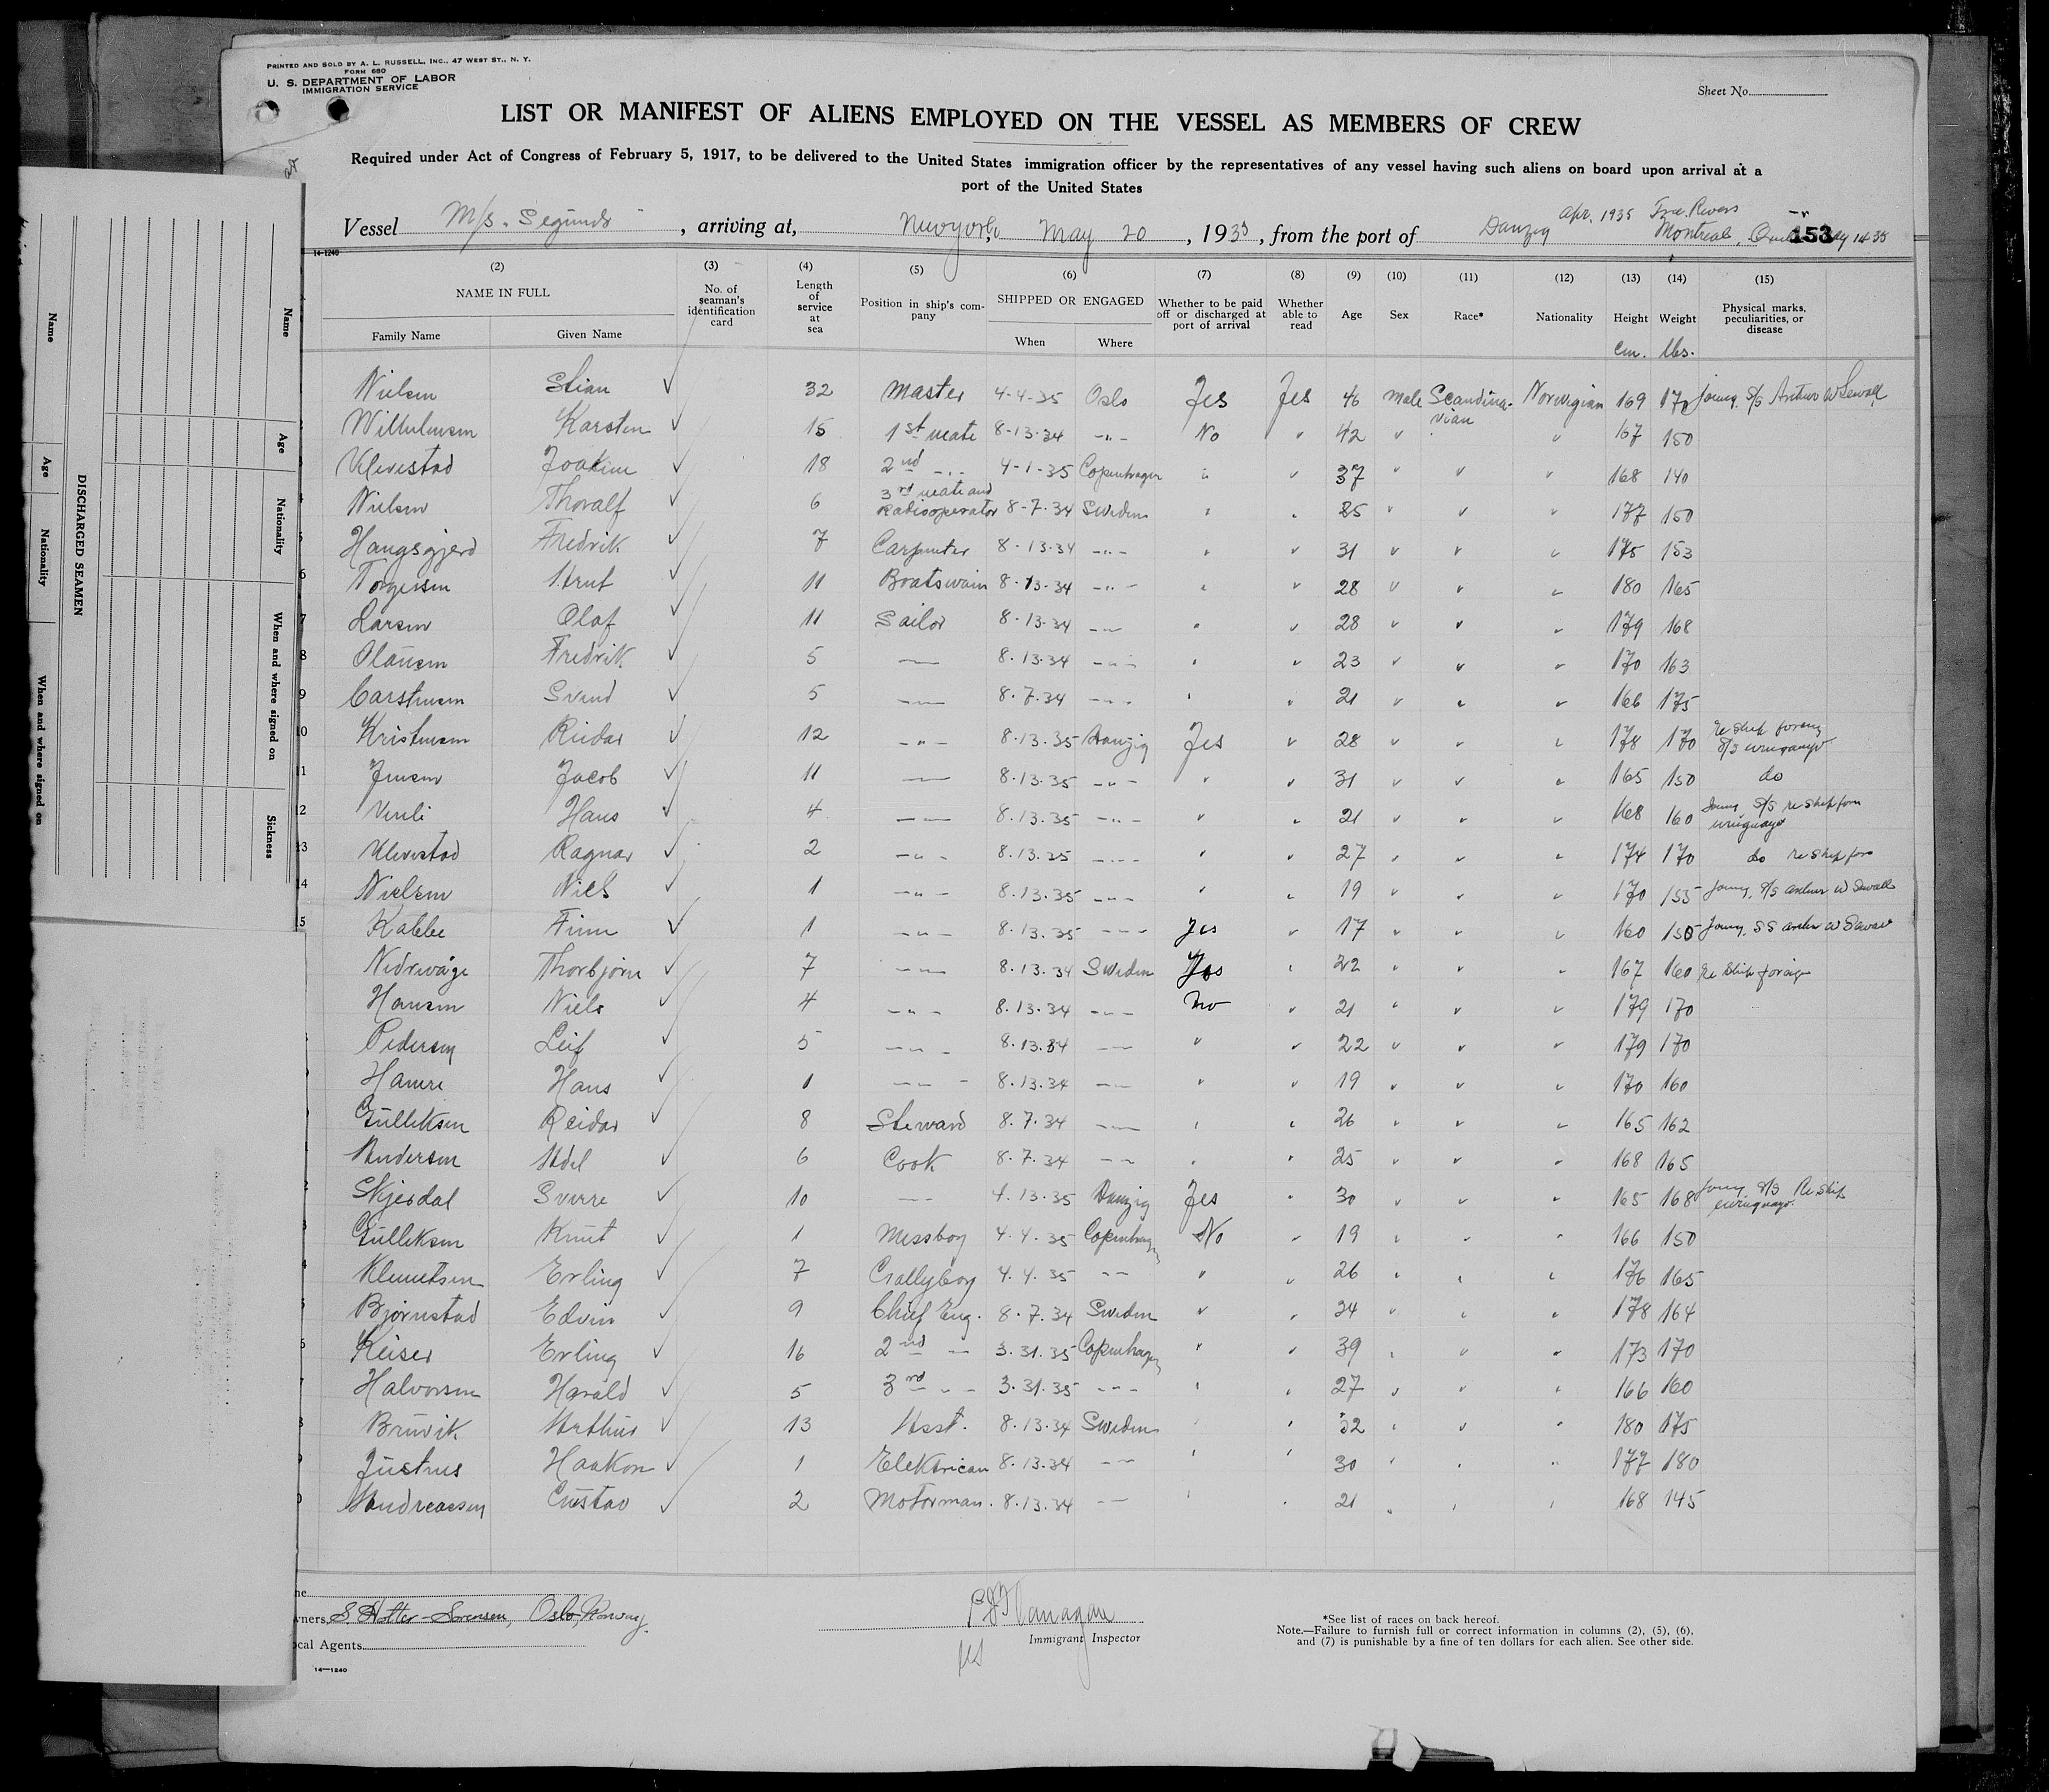 PRINTED AND SOLD BY A. L. RUSSELL, INC., 47 WEST ST., N. Y.
FORM 680
U. S. DEPARTMENT OF LABOR
IMMIGRATION SERVICE
Sheet No.
LIST OR MANIFEST OF ALIENS EMPLOYED ON THE VESSEL AS MEMBERS OF CREW
Required under Act of Congress of February 5, 1917, to be delivered to the United States immigration officer by the representatives of any vessel having such aliens on board upon arrival at a
port of the United States
Apr. 1935
Vessel M/s. Segundo, arriving at, Newyork, May 20, 1935, from the port of Danzig Montreal, 153
14-1240
(2) (3) (4) (5) (6) (7) (8) (9) (10) (11) (12) (13) (14) (15)
NAME IN FULL No. of seaman's identification card Length of service at sea Position in ship's company SHIPPED OR ENGAGED Whether to be paid off or discharged at port of arrival Whether able to read Age Sex Race* Nationality Height Weight Physical marks, peculiarities, or disease
Family Name Given Name When Where cm. lbs.
Nielsen Stian ✓ 32 Master 4-4-35 Oslo Yes Yes 46 male Scandinavian Norwegian 169 170 joing. S/S Arthur W Sewall
Wilhelmsen Karsten ✓ 15 1st mate 8-13-34 -"- No " 42 " " 167 150
Klevestad Joakim ✓ 18 2nd -"- 4-1-35 Copenhagen " " 37 " " " 168 140
Nielsen Thoralf ✓ 6 3rd mate and Radiooperator 8-7-34 Sweden " " 25 " " " 177 150
Haugsgjerd Fredrik ✓ 7 Carpenter 8-13-34 -"- " " 31 " " " 175 153
6 Torgersen Arnt ✓ 11 Boatswain 8-13-34 -"- " " 28 " " " 180 165
7 Larsen Olaf ✓ 11 Sailor 8-13-34 -"- " " 28 " " " 179 168
8 Olausen Fredrik ✓ 5 -"- 8.13.34 -"- " " 23 " " " 170 163
9 Carstensen Svend ✓ 5 -"- 8.7.34 -"- " " 21 " " " 166 175
10 Kristensen Reidar ✓ 12 -"- 8.13.35 Danzig Yes " 28 " " " 178 170 re ship foreign S/S uruguayo
11 Jensen Jacob ✓ 11 -"- 8.13.35 -"- " " 31 " " " 165 150 do
12 Venli Hans ✓ 4 -"- 8.13.35 -"- " " 21 " " " 168 160 joing S/S re ship forn uruguayo
13 Klevestad Ragnar ✓ 2 -"- 8.13.35 -"- " " 27 " " " 174 170 do re ship forn
14 Nielsen Niels ✓ 1 -"- 8.13.35 -"- " " 19 " " " 170 155 joing. S/S arthur W Sewall
15 Kablee Finn ✓ 1 -"- 8.13.35 -"- Yes " 17 " " " 160 150 joing. SS arthur W Sewall
Nedrevåge Thorbjørn ✓ 7 -"- 8.13.34 Sweden Yes " 22 " " " 167 160 re ship foreign
Hansen Niels ✓ 4 -"- 8.13.34 -"- no " 21 " " " 179 170
Pedersen Leif ✓ 5 -"- 8.13.34 -"- " " 22 " " " 179 170
Hamre Hans ✓ 1 -"- 8.13.34 -"- " " 19 " " " 170 160
Gulleksen Reidar ✓ 8 Steward 8.7.34 -"- " " 26 " " " 165 162
Andersen Adel ✓ 6 Cook 8.7.34 -"- " " 25 " " " 168 165
Skjerdal Sverre ✓ 10 -"- 4.13.35 Danzig Yes " 30 " " " 165 168 joing S/S Re ship uruguayo.
Gulleksen Knut ✓ 1 Messboy 4.4.35 Copenhagen No " 19 " " " 166 150
Klemetsen Erling ✓ 7 Galleyboy 4.4.35 -"- " " 26 " " " 176 165
Bjørnstad Edvin ✓ 9 Chief Eng. 8.7.34 Sweden " " 34 " " " 178 164
Keiser Erling ✓ 16 2nd -"- 3.31.35 Copenhagen " " 39 " " " 173 170
Halvorsen Harald ✓ 5 3rd -"- 3.31.35 -"- " " 27 " " " 166 160
Bruvik Arthur ✓ 13 Asst. 8.13.34 Sweden " " 32 " " " 180 175
Justnes Haakon ✓ 1 Elektrican 8.13.34 -"- " " 30 " " " 177 180
Andreassen Gustav ✓ 2 Motorman. 8.13.34 -"- " " 21 " " " 168 145
wners, S. Holter-Sorensen, Oslo, Norway.
cal Agents
14-1240
PJ Flanagan
Immigrant Inspector
*See list of races on back hereof.
NOTE.—Failure to furnish full or correct information in columns (2), (5), (6),
and (7) is punishable by a fine of ten dollars for each alien. See other side.
DISCHARGED SEAMEN
Name Age Nationality When and where signed on Sickness
Name Age Nationality When and where signed on